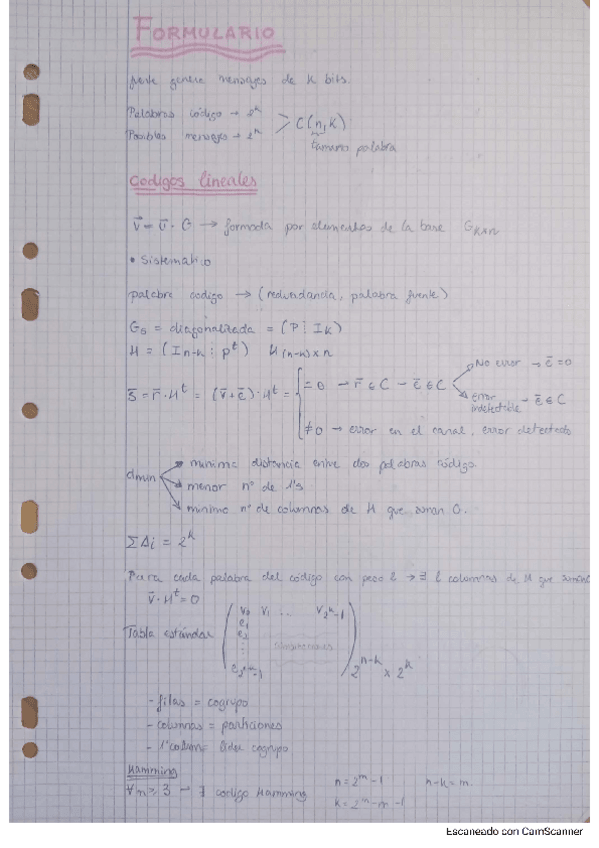 FORMULARIO
fuente genera mensajes de k bits.
Palabras código → 2^k
Posibles mensajes → 2^k > C(n,k)
tamano palabra
Codigos lineales
v̄ = ū · G → formada por elementos de la base G_{k×n}
• Sistemático
palabra codigo → (redundancia, palabra fuente)
G_s = diagonalizada = (P ⋮ I_k)
H = (I_{n-k} ⋮ P^t) H_{(n-k)×n}
No error → ē = 0
s̄ = r̄ · H^t = (v̄ + ē) · H^t = { = 0 → r̄ ∈ C → ē ∈ C
error indetectable → ē ∈ C
≠ 0 → error en el canal, error detectado
minima distancia entre dos palabras código.
dmin menor nº de 1's
minimo nº de columnas de H que suman 0.
∑Ai = 2^k
Para cada palabra del código con peso l → ∃ l columnas de H que suman
v̄ · H^t = 0
v_0 v_1 ... v_{2^k-1}
e_1
Tabla estándar e_2
⋮
e_{2^{n-k}-1} 2^{n-k} × 2^k
- filas = cogrupo
- columnas = particiones
- 1ª column = lider cogrupo
Hamming
∀m ≥ 3 → ∃ codigo Hamming n = 2^m - 1 n-k = m
k = 2^m - m - 1
Escaneado con CamScanner